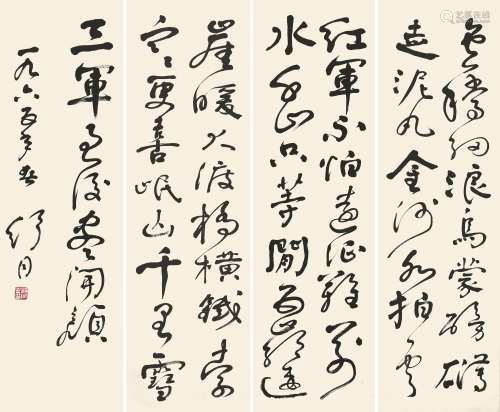 紅軍不怕遠征難万
水千山只等閒五嶺逶
迤騰細浪烏蒙磅礴
走泥丸金沙水拍雲
崖暖大渡橋橫鐵索
寒更喜岷山千里雪
三軍過後盡開顏
一九六五年
舒同